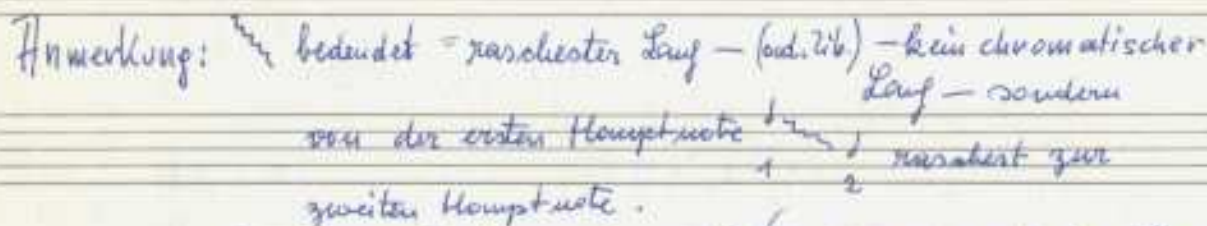 Anmerkung: bedeutet = raschester Lauf – (ad. lib) – kein chromatischer
Lauf – sondern
von der ersten Hauptnote raschest zur
1 2
zweiten Hauptnote.